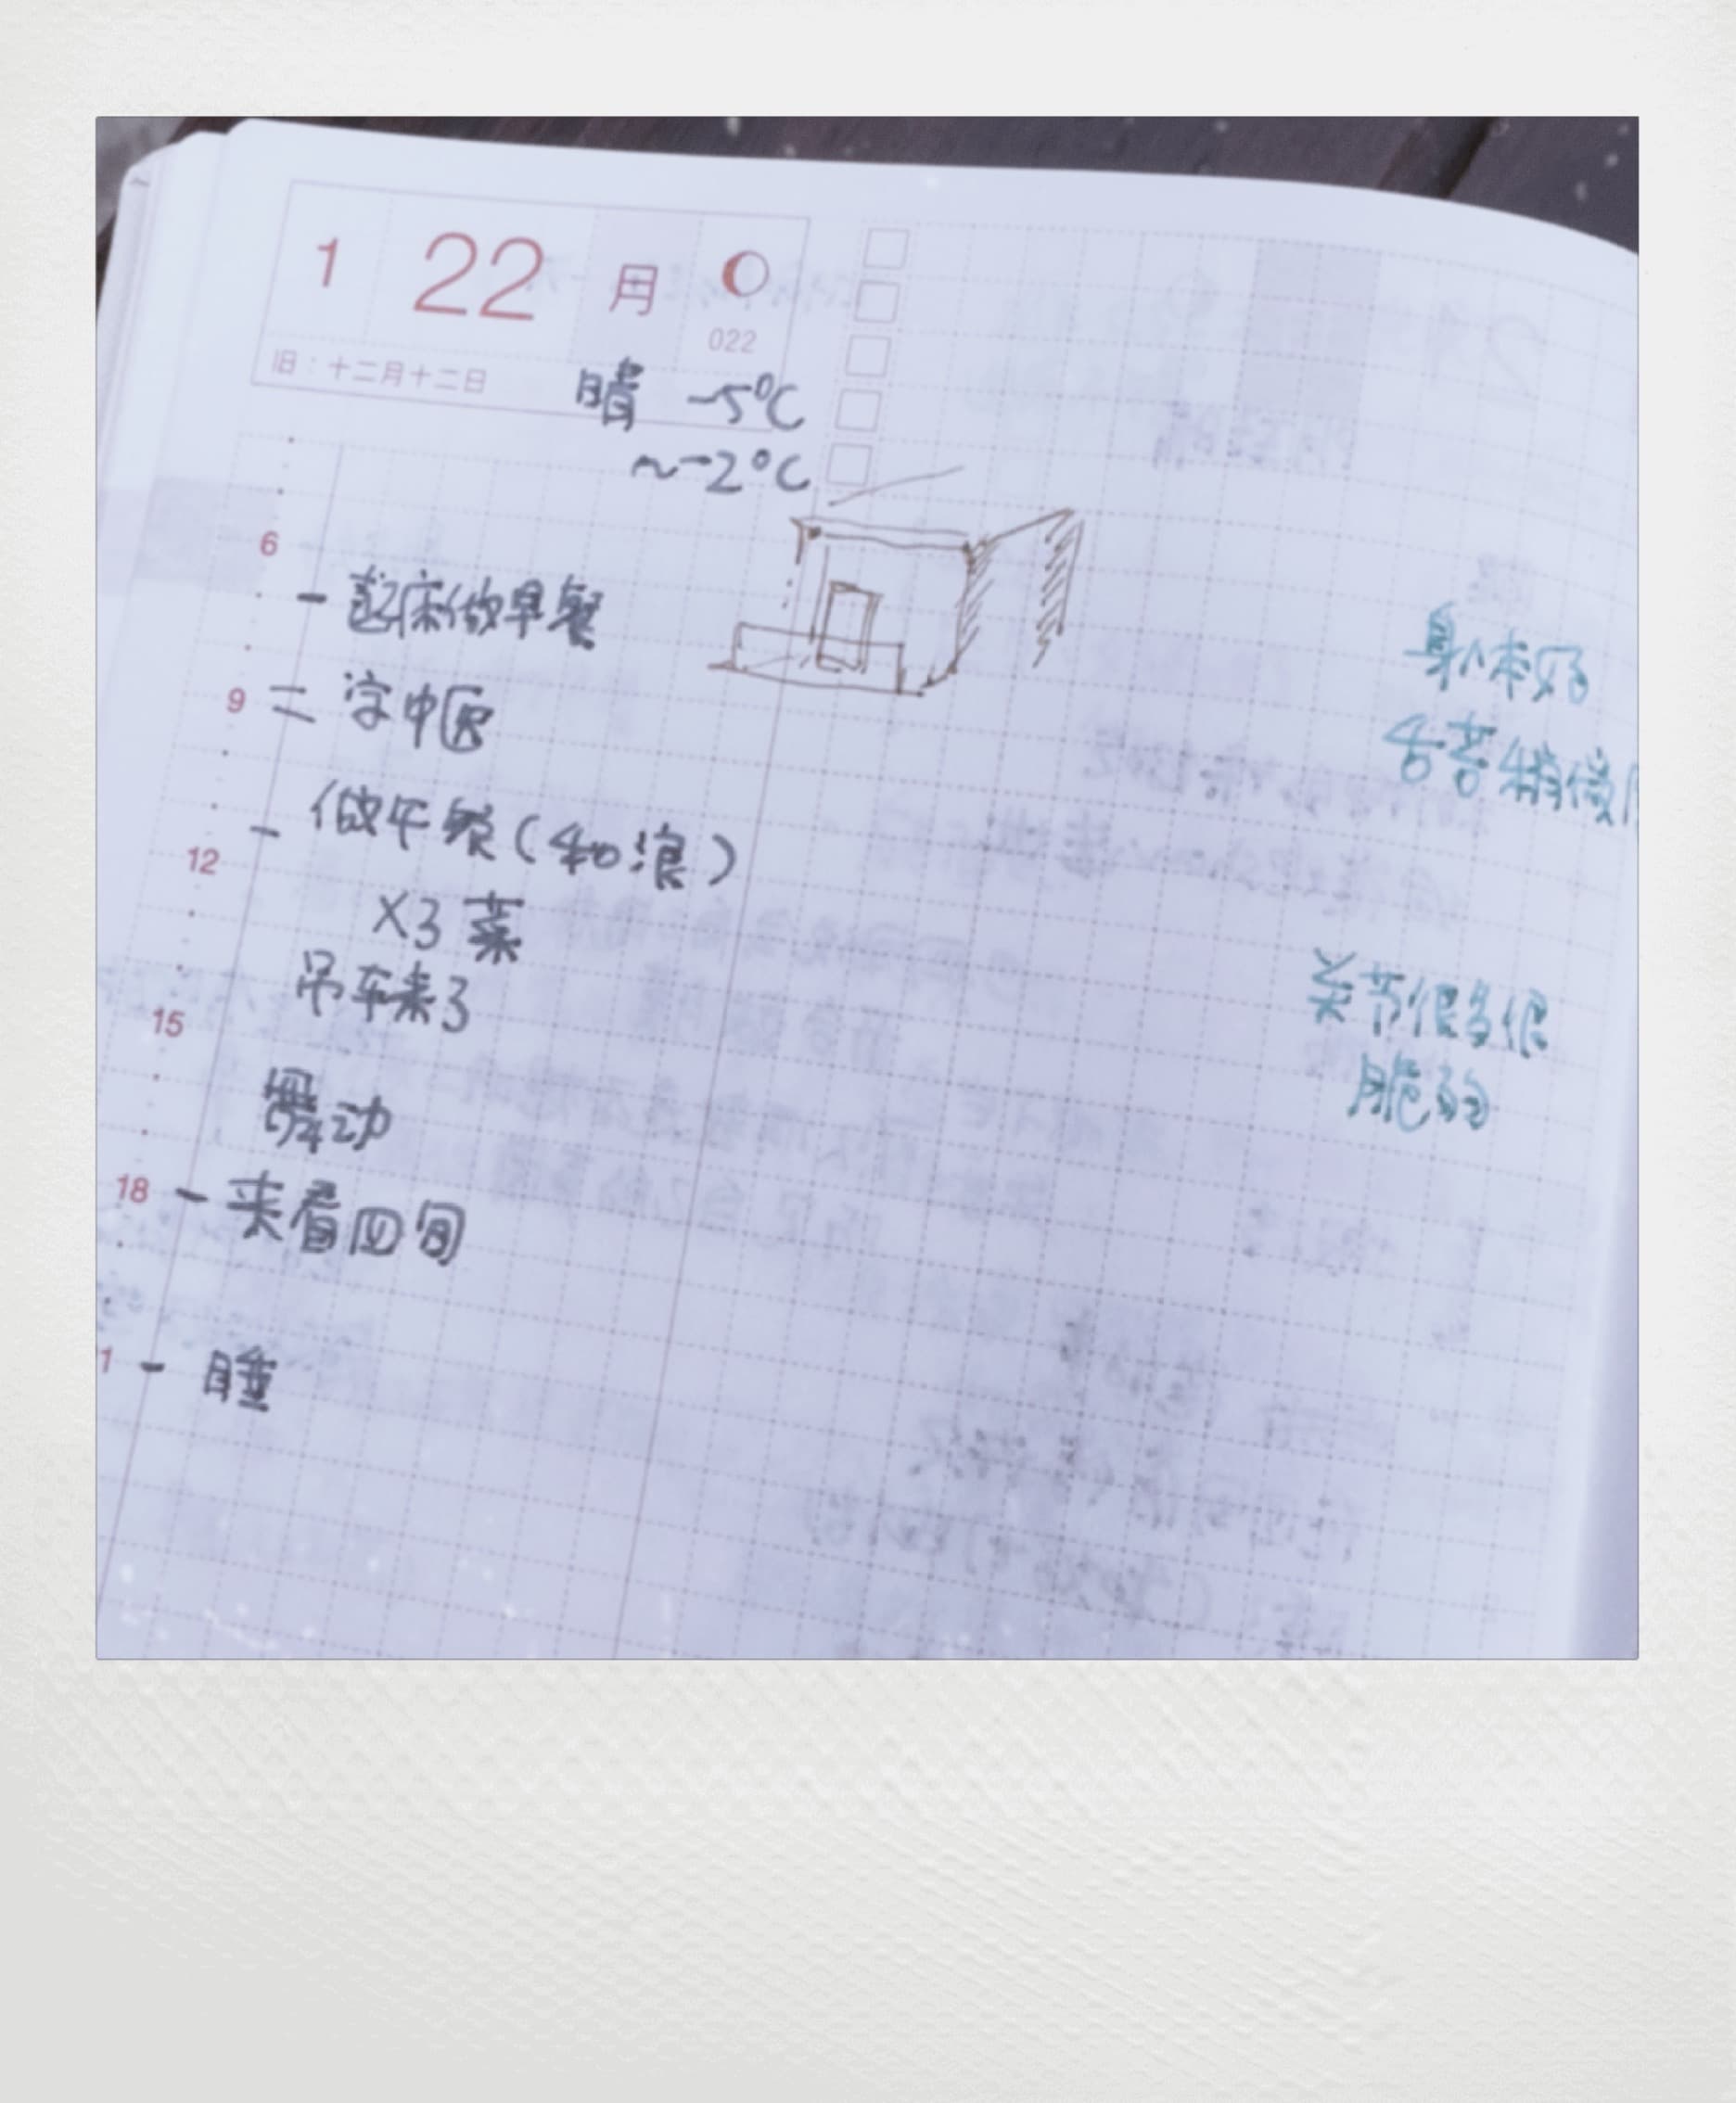 1 22 月
022
旧：十二月十二日
晴 -5℃
~-2℃
6
- 起床做早餐
9 = 学中医
- 做午餐(和浪)
12
×3菜
吊车来了
15
劳动
18 - 来看四旬
1 - 睡
身体好
舌苔稍微
关节很多很
脆的